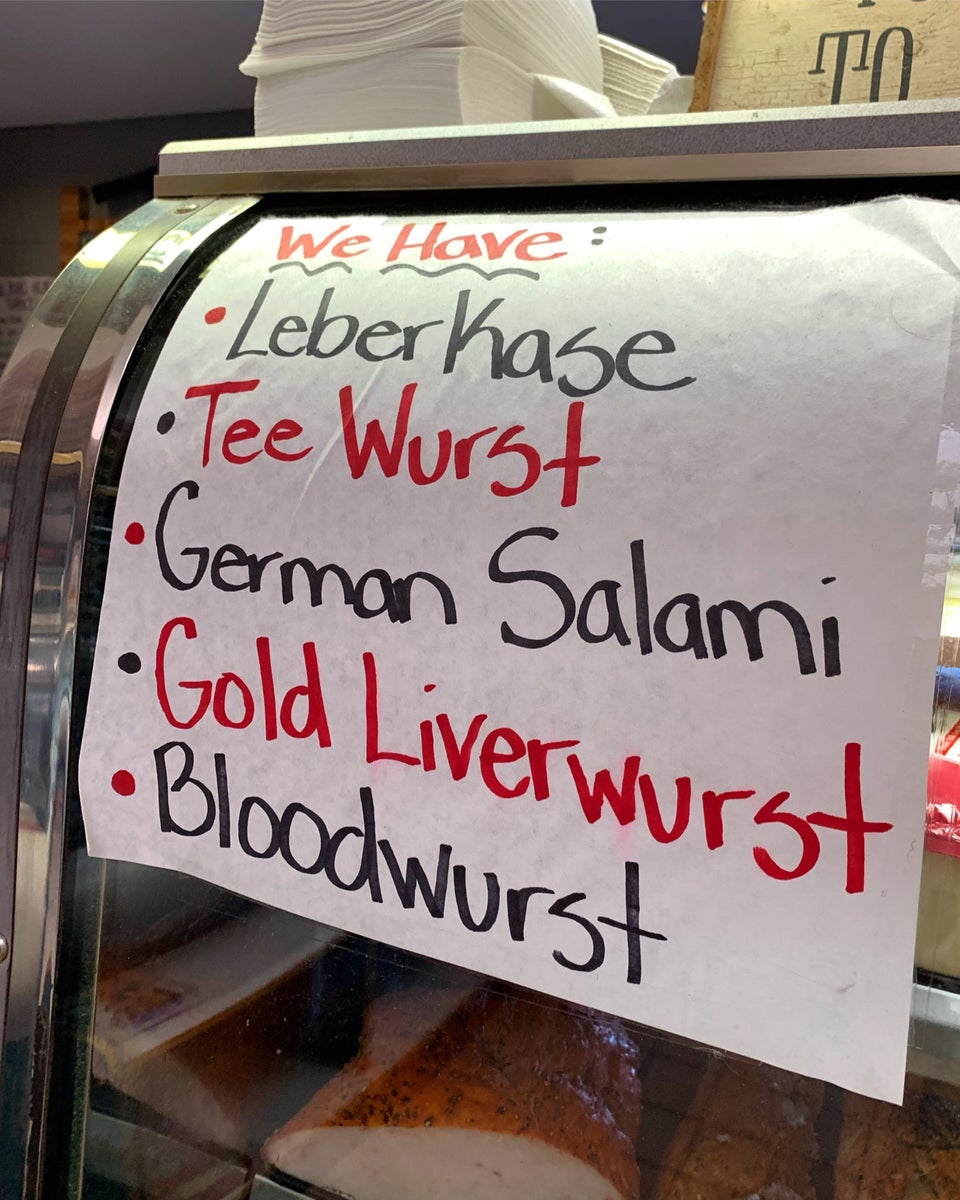 TO
We Have:
• LeberKase
• Tee Wurst
• German Salami
• Gold Liverwurst
• Bloodwurst